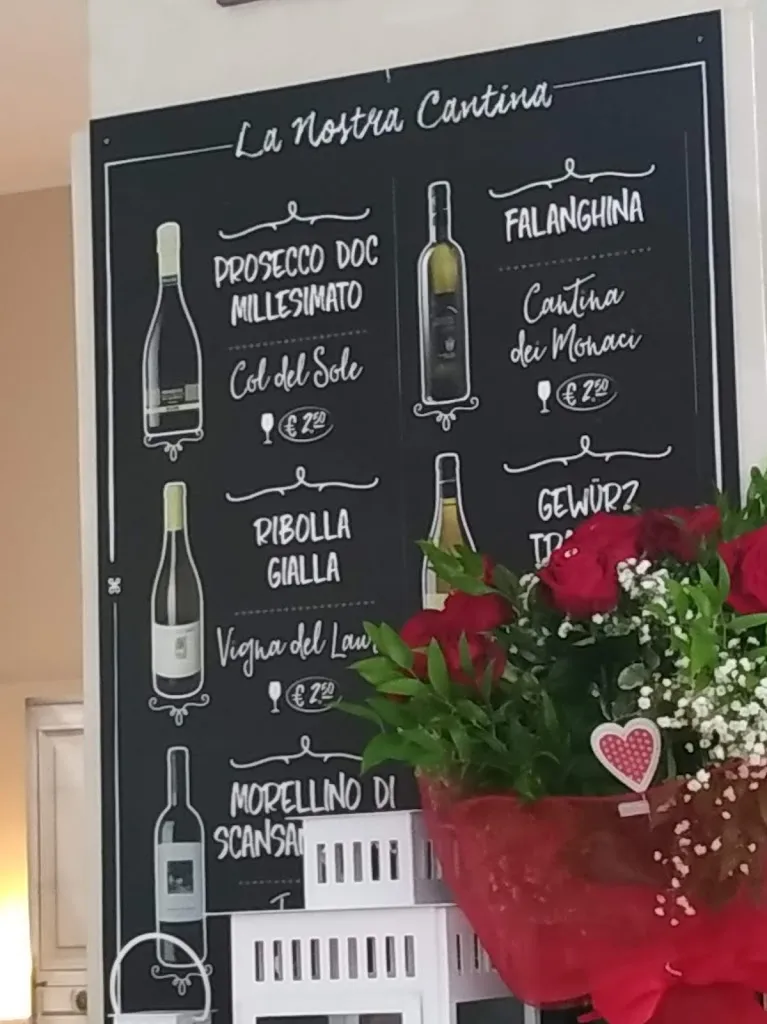 La Nostra Cantina
PROSECCO DOC
MILLESIMATO
Col del Sole
€ 2,50
FALANGHINA
Cantina
dei Monaci
€ 2,50
RIBOLLA
GIALLA
Vigna del
€ 2,50
GEWÜRZ
MORELLINO DI